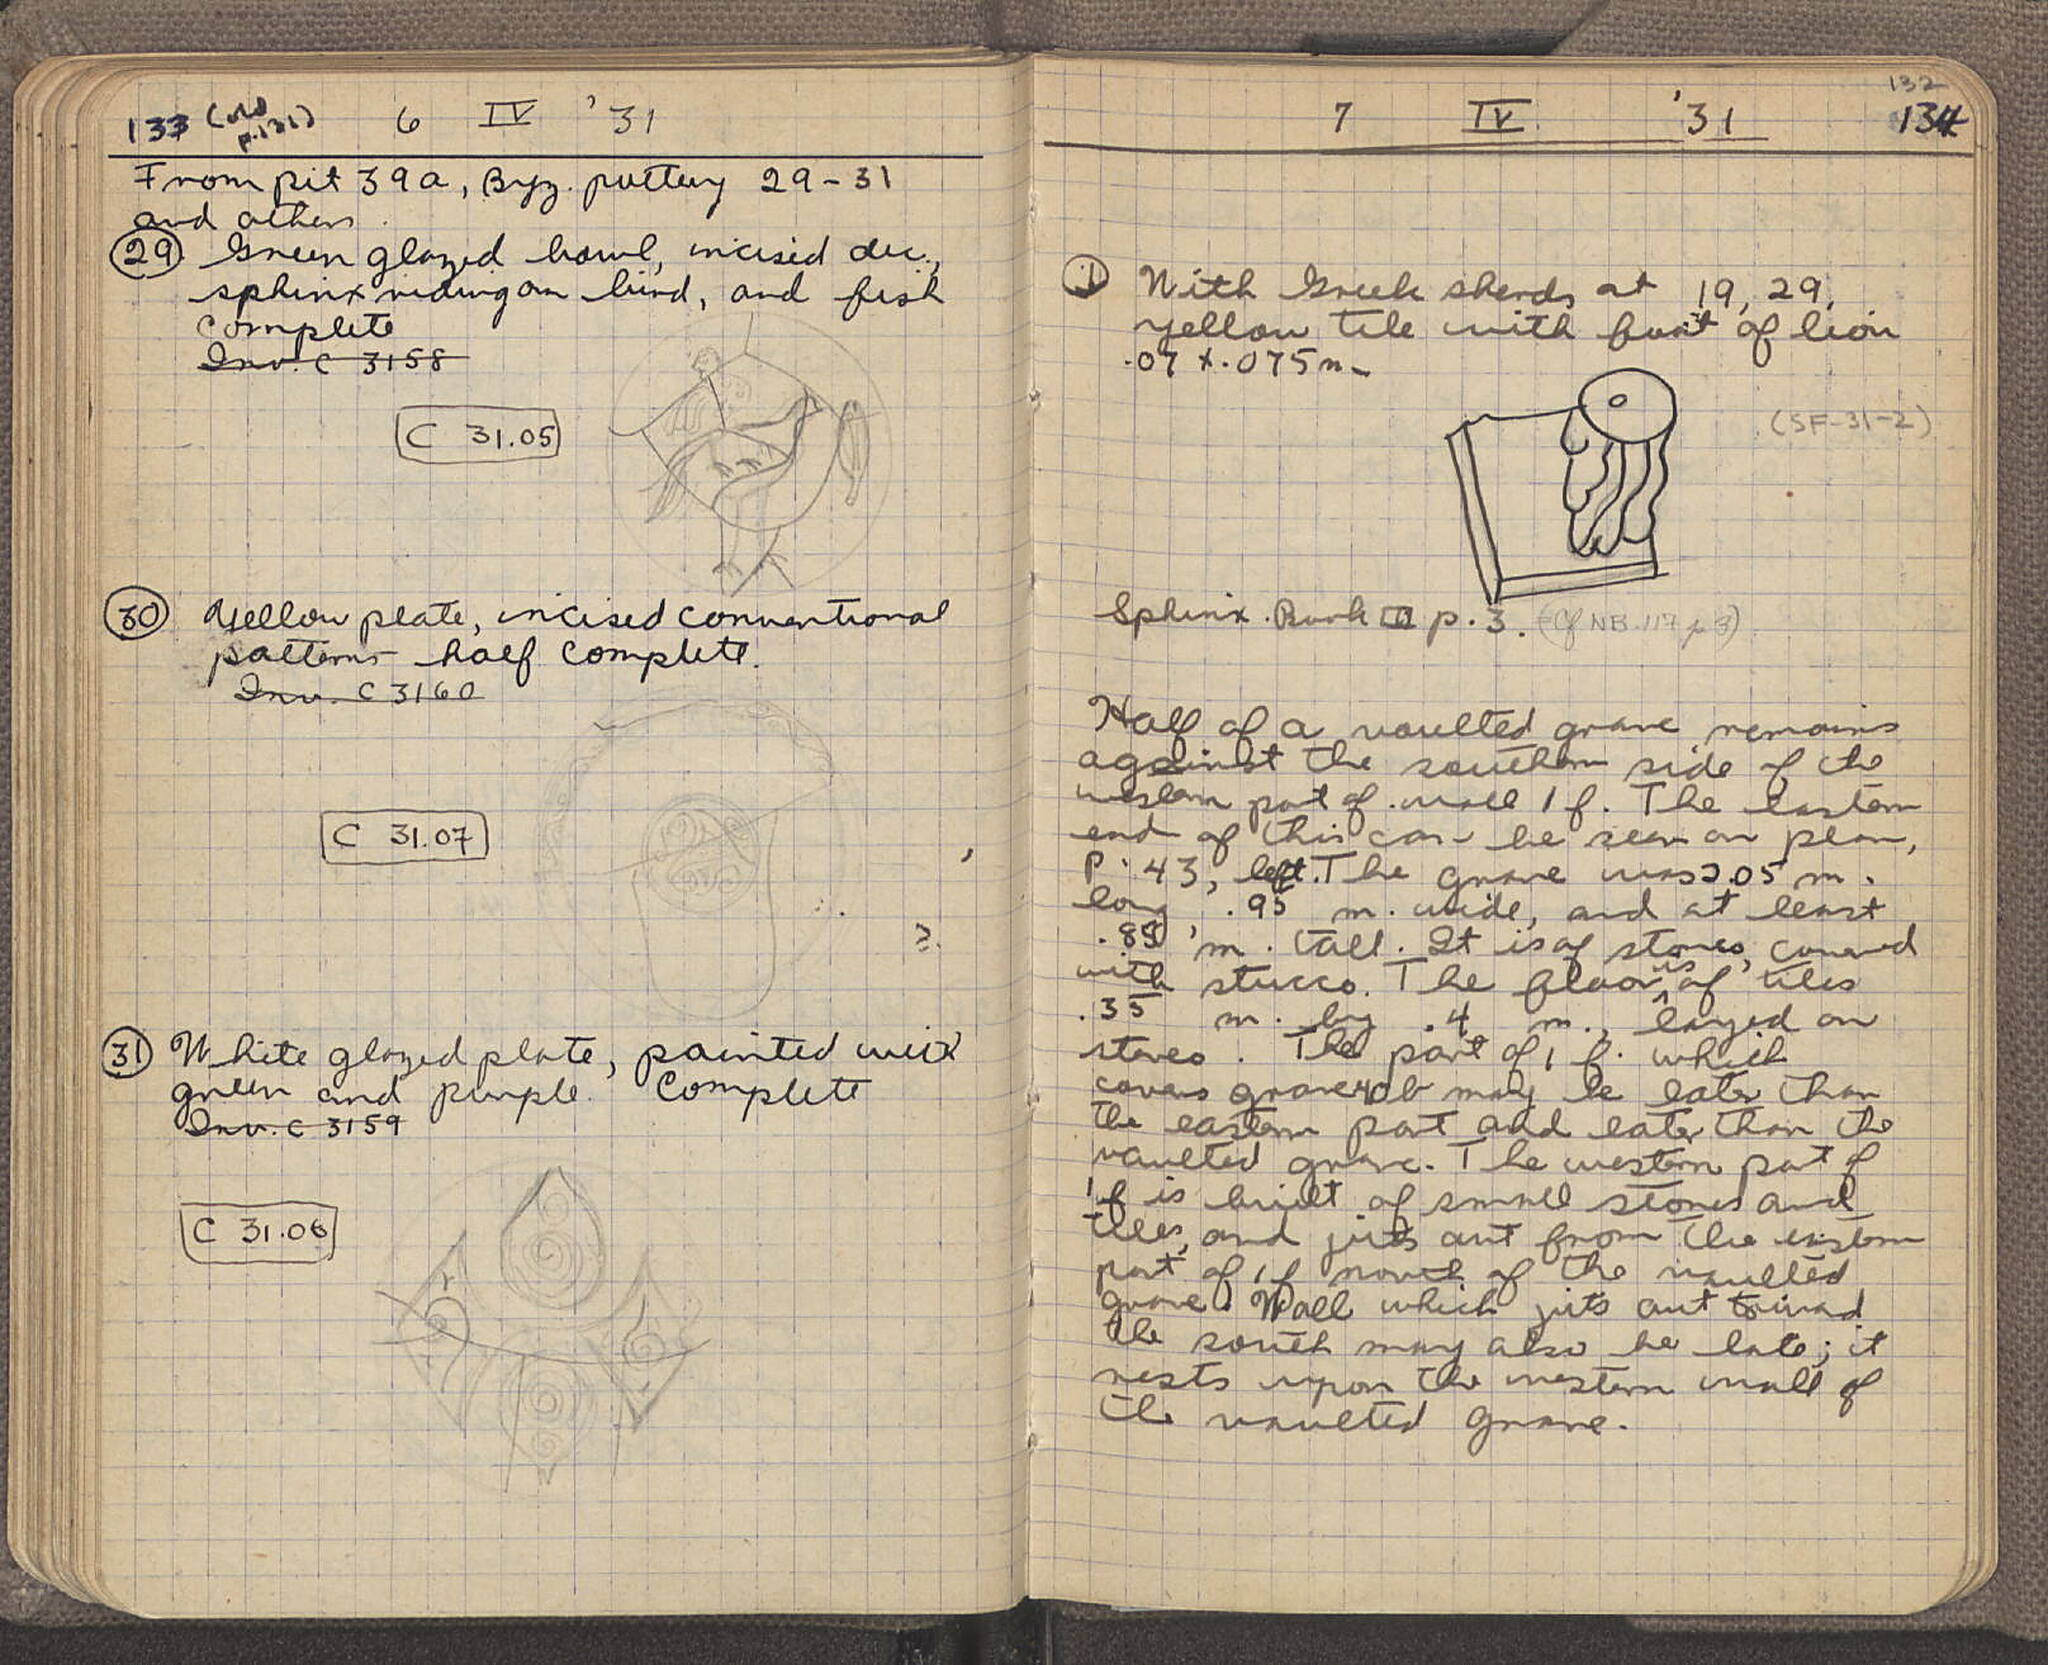 133 (old p.131) 6 IV '31
From pit 39a, Byz. pottery 29-31
and others.
29 Green glazed bowl, incised dec.,
sphinx riding on bird, and fish
complete
Inv. C 3158
C 31.05
30 Yellow plate, incised conventional
patterns half complete.
Inv. C 3160
C 31.07
31 White glazed plate, painted with
green and purple. Complete
Inv. C 3159
C 31.06
132
7 IV '31 134
1 With Greek sherds at 19, 29,
yellow tile with foot of lion
.07 x .075 m.
(SF-31-2)
Sphinx. Book III p. 3. (cf NB.117 p 3)
Half of a vaulted grave remains
against the southern side of the
western part of wall 1 f. The eastern
end of this can be seen on plan,
p. 43, left. The grave was 2.05 m.
long, .95 m. wide, and at least
.85 m. tall. It is of stones, covered
with stucco. The floor is of tiles
.35 m. by .4 m., layed on
stones. The part of 1 f. which
covers grave 40b may be later than
the eastern part and later than the
vaulted grave. The western part of
1f is built of small stones and
tiles, and juts out from the eastern
part of 1f north of the vaulted
grave. Wall which juts out toward
the south may also be late; it
rests upon the western wall of
the vaulted grave.